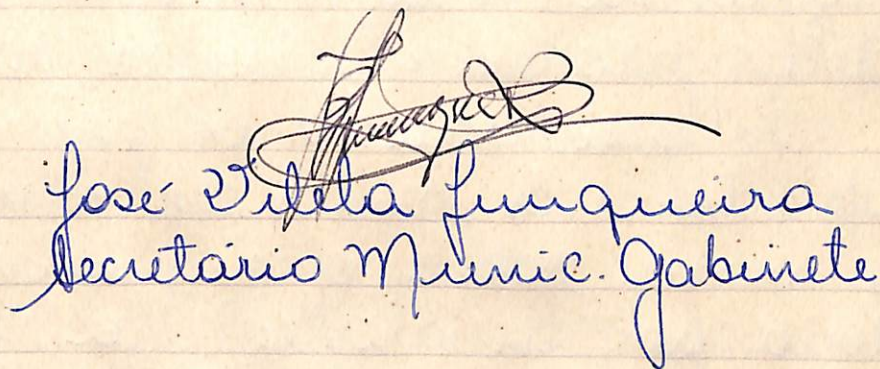 José Vilela Junqueira
Secretário Munic. Gabinete